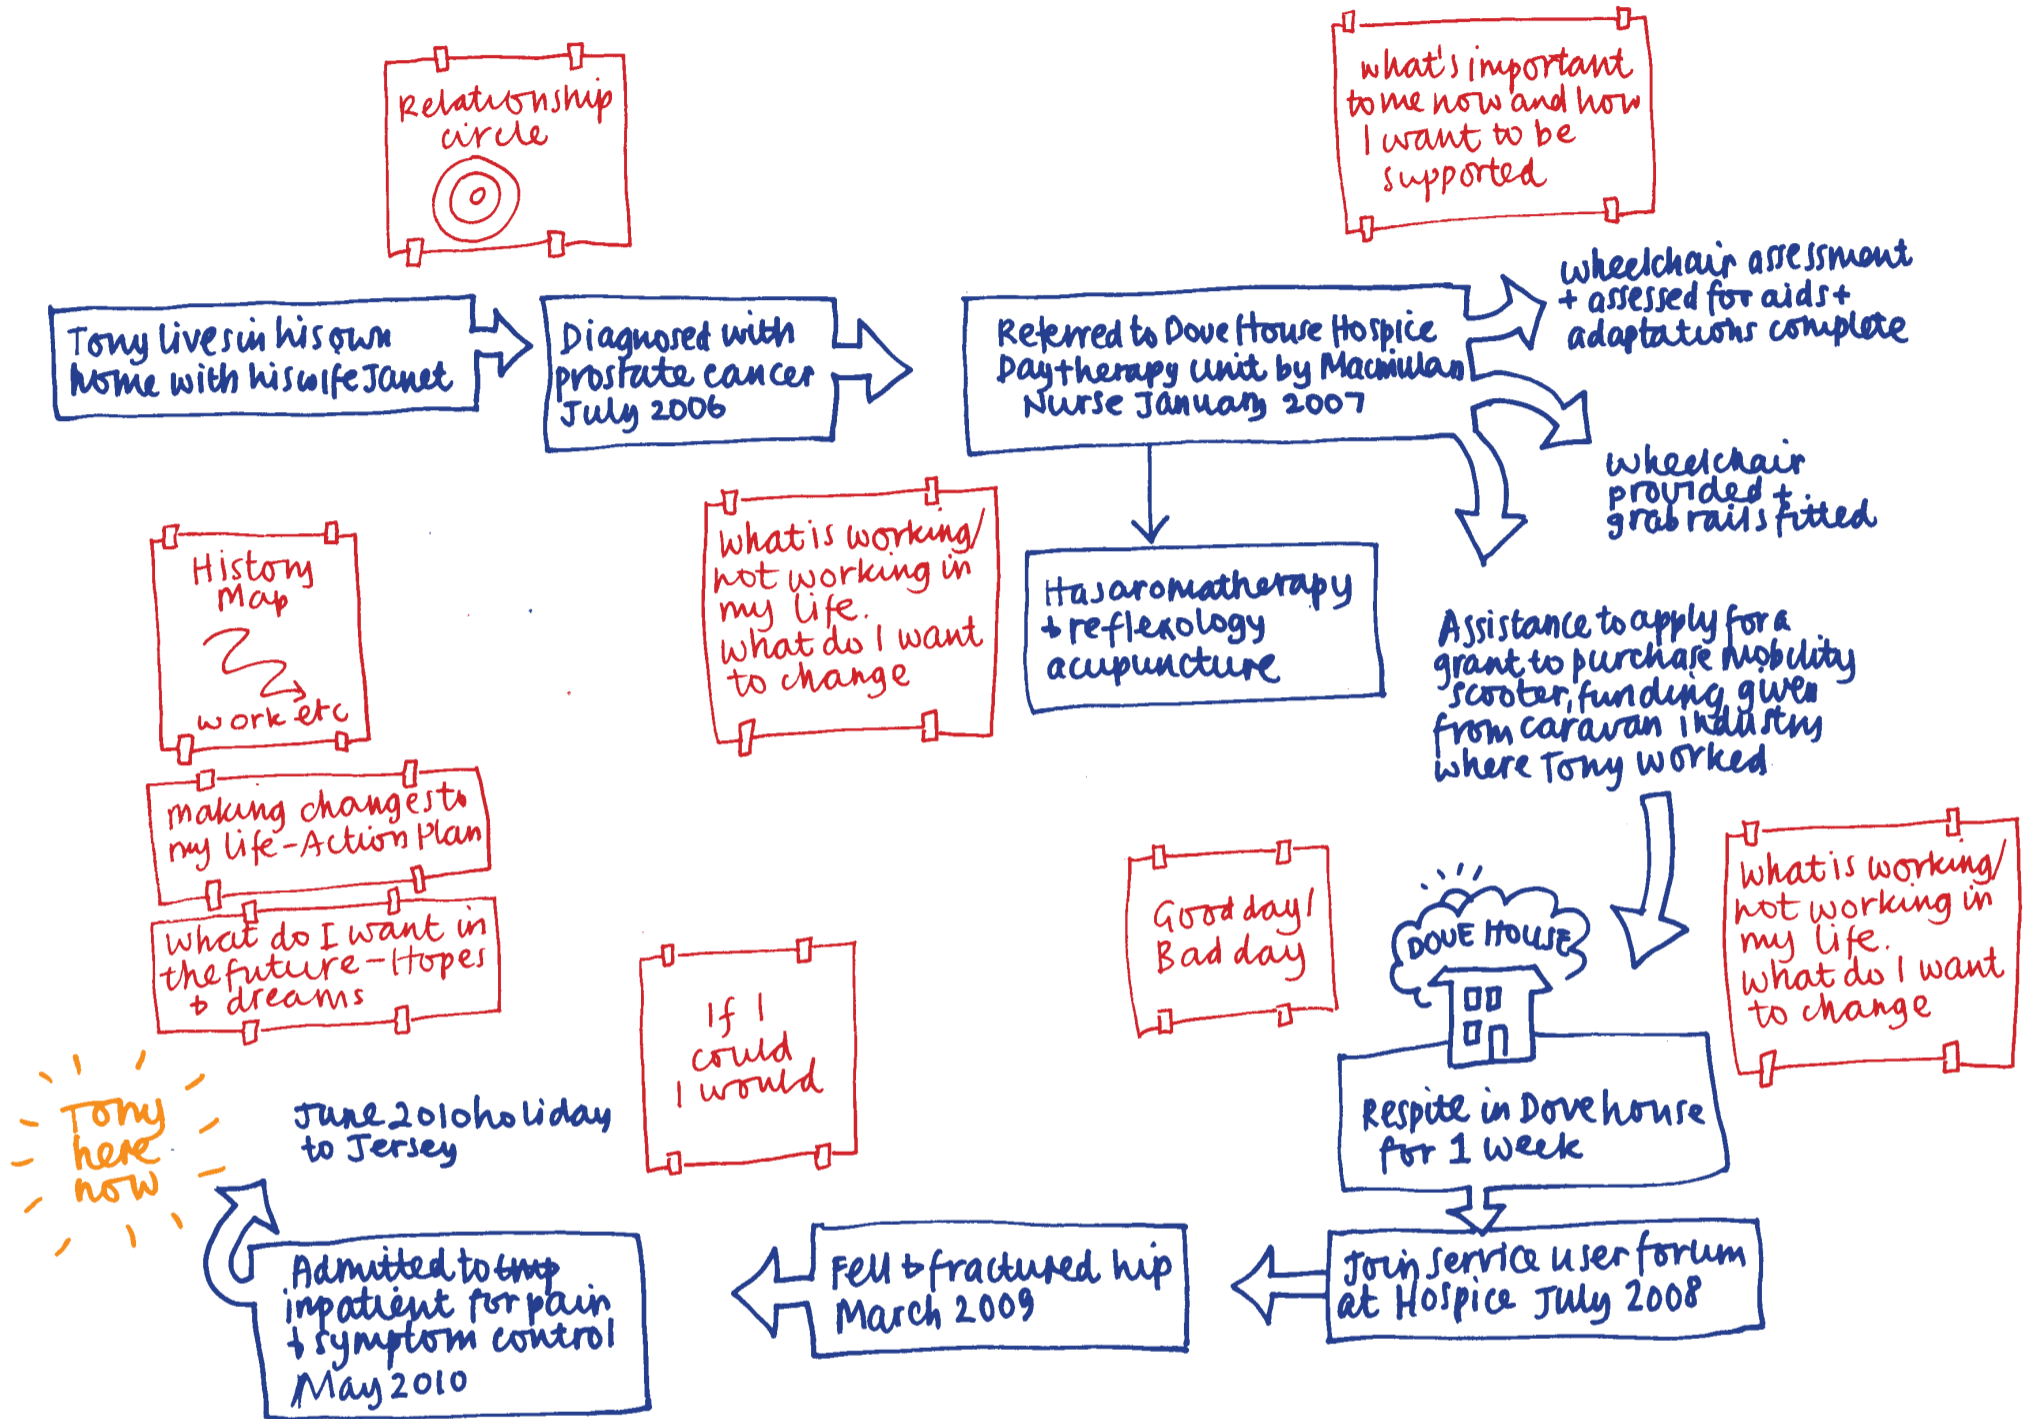 Relationship
circle
what's important
to me now and how
I want to be
supported
Tony lives in his own
home with his wife Janet
Diagnosed with
prostate cancer
July 2006
Referred to Dove House Hospice
Daytherapy unit by Macmillan
Nurse January 2007
wheelchair assessment
+ assessed for aids +
adaptations complete
wheelchair
provided +
grab rails fitted
History
Map
work etc
what is working/
not working in
my life.
what do I want
to change
Has aromatherapy
+ reflexology
acupuncture
Assistance to apply for a
grant to purchase mobility
scooter, funding given
from caravan industry
where Tony worked
making changes to
my life - Action Plan
what do I want in
the future - Hopes
+ dreams
If I
could
I would
Good day/
Bad day
DOVE HOUSE
what is working/
not working in
my life.
what do I want
to change
Respite in Dove house
for 1 week
Tony
here
now
June 2010 holiday
to Jersey
Admitted to
inpatient for pain
+ symptom control
May 2010
Fell + fractured hip
March 2009
Join service user forum
at Hospice July 2008